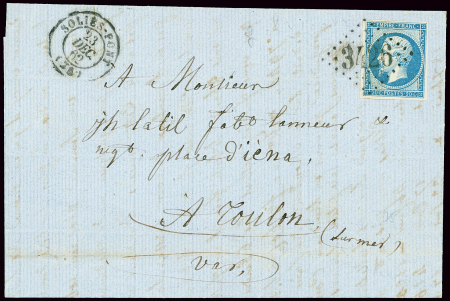 SOLIÈS-PONT
23
DEC
62
(78)
3426
EMPIRE FRANC.
20c POSTES 20c
A Monsieur
Jh latil fabt tanneur &
negt. place d'iéna,
A Toulon
(sur mer)
Var,